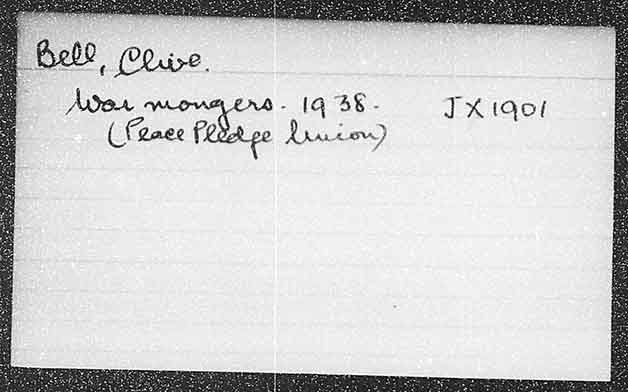 Bell, Clive.
War mongers. 1938. JX1901
(Peace Pledge Union)